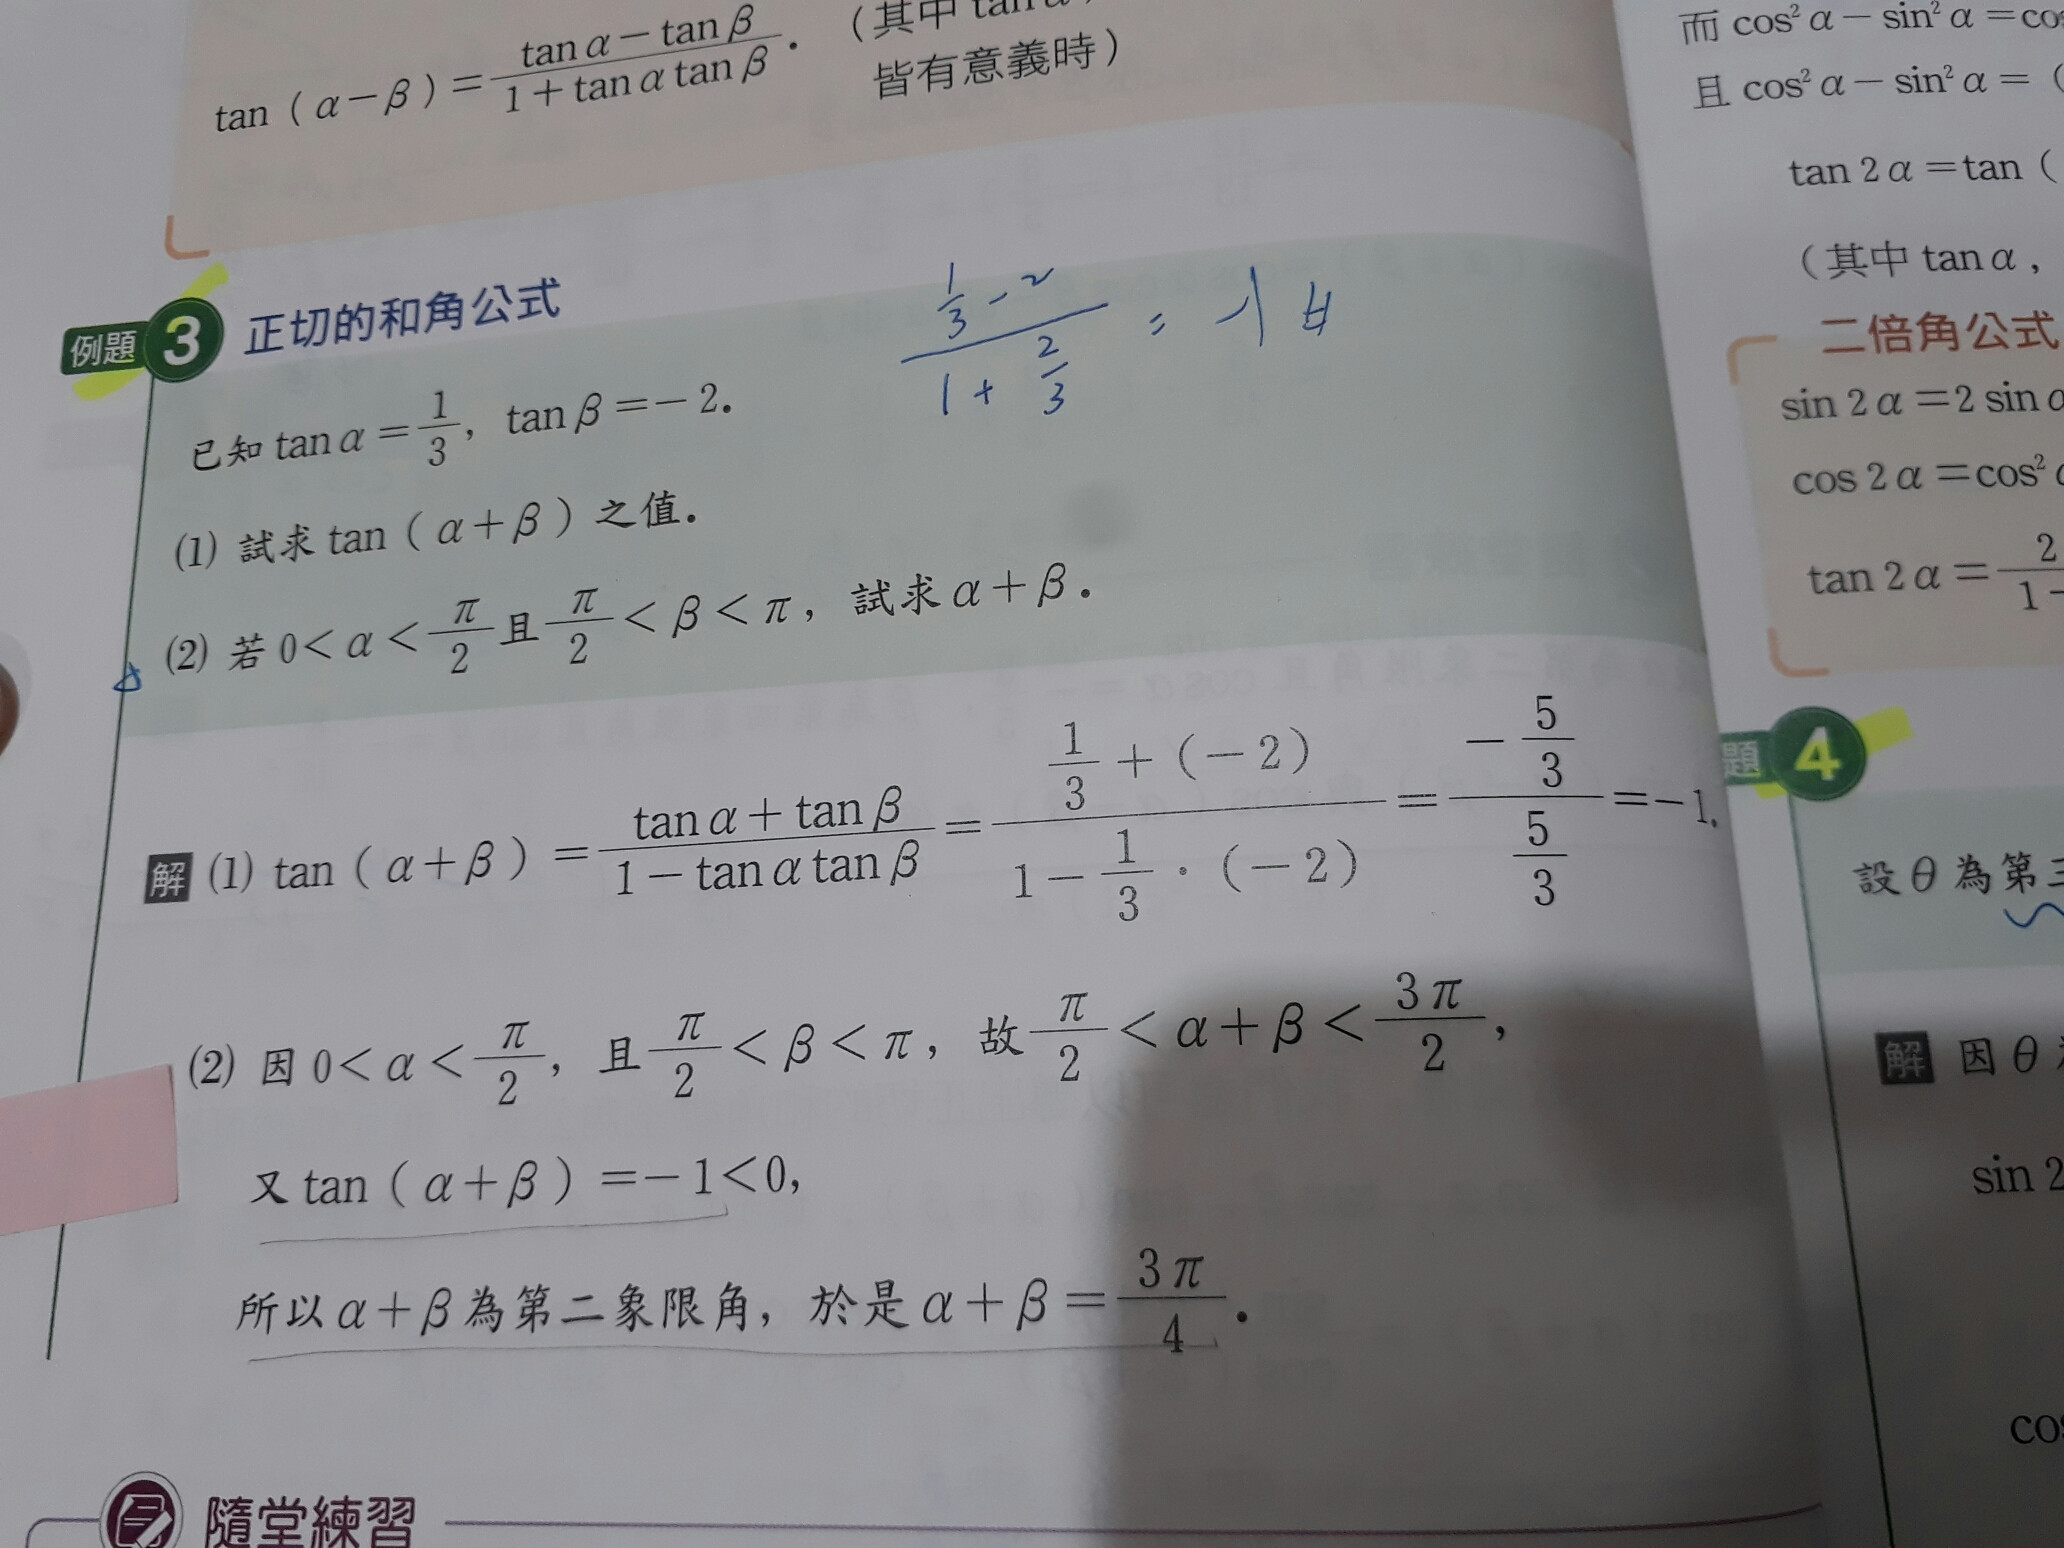 tan（α－β）＝\frac{tan α－tan β}{1＋tan α tan β}．（其中 tan α，
皆有意義時）
例題 3 正切的和角公式
\frac{\frac{1}{3}-2}{1+\frac{2}{3}} = -1 #
已知 tan α＝\frac{1}{3}，tan β＝－2．
(1) 試求 tan（α＋β）之值．
(2) 若 0＜α＜\frac{π}{2} 且 \frac{π}{2}＜β＜π，試求 α＋β．
解 (1) tan（α＋β）＝\frac{tan α＋tan β}{1－tan α tan β}＝\frac{\frac{1}{3}＋（－2）}{1－\frac{1}{3}·（－2）}＝\frac{－\frac{5}{3}}{\frac{5}{3}}＝－1．
(2) 因 0＜α＜\frac{π}{2}，且 \frac{π}{2}＜β＜π，故 \frac{π}{2}＜α＋β＜\frac{3π}{2}，
又 tan（α＋β）＝－1＜0，
所以 α＋β 為第二象限角，於是 α＋β＝\frac{3π}{4}．
隨堂練習
而 cos² α－sin² α＝co
且 cos² α－sin² α＝（
tan 2α＝tan（
（其中 tan α，
二倍角公式
sin 2α＝2 sin α
cos 2α＝cos²
tan 2α＝\frac{2}{1－
題 4
設 θ 為第三
解 因 θ
sin 2
co